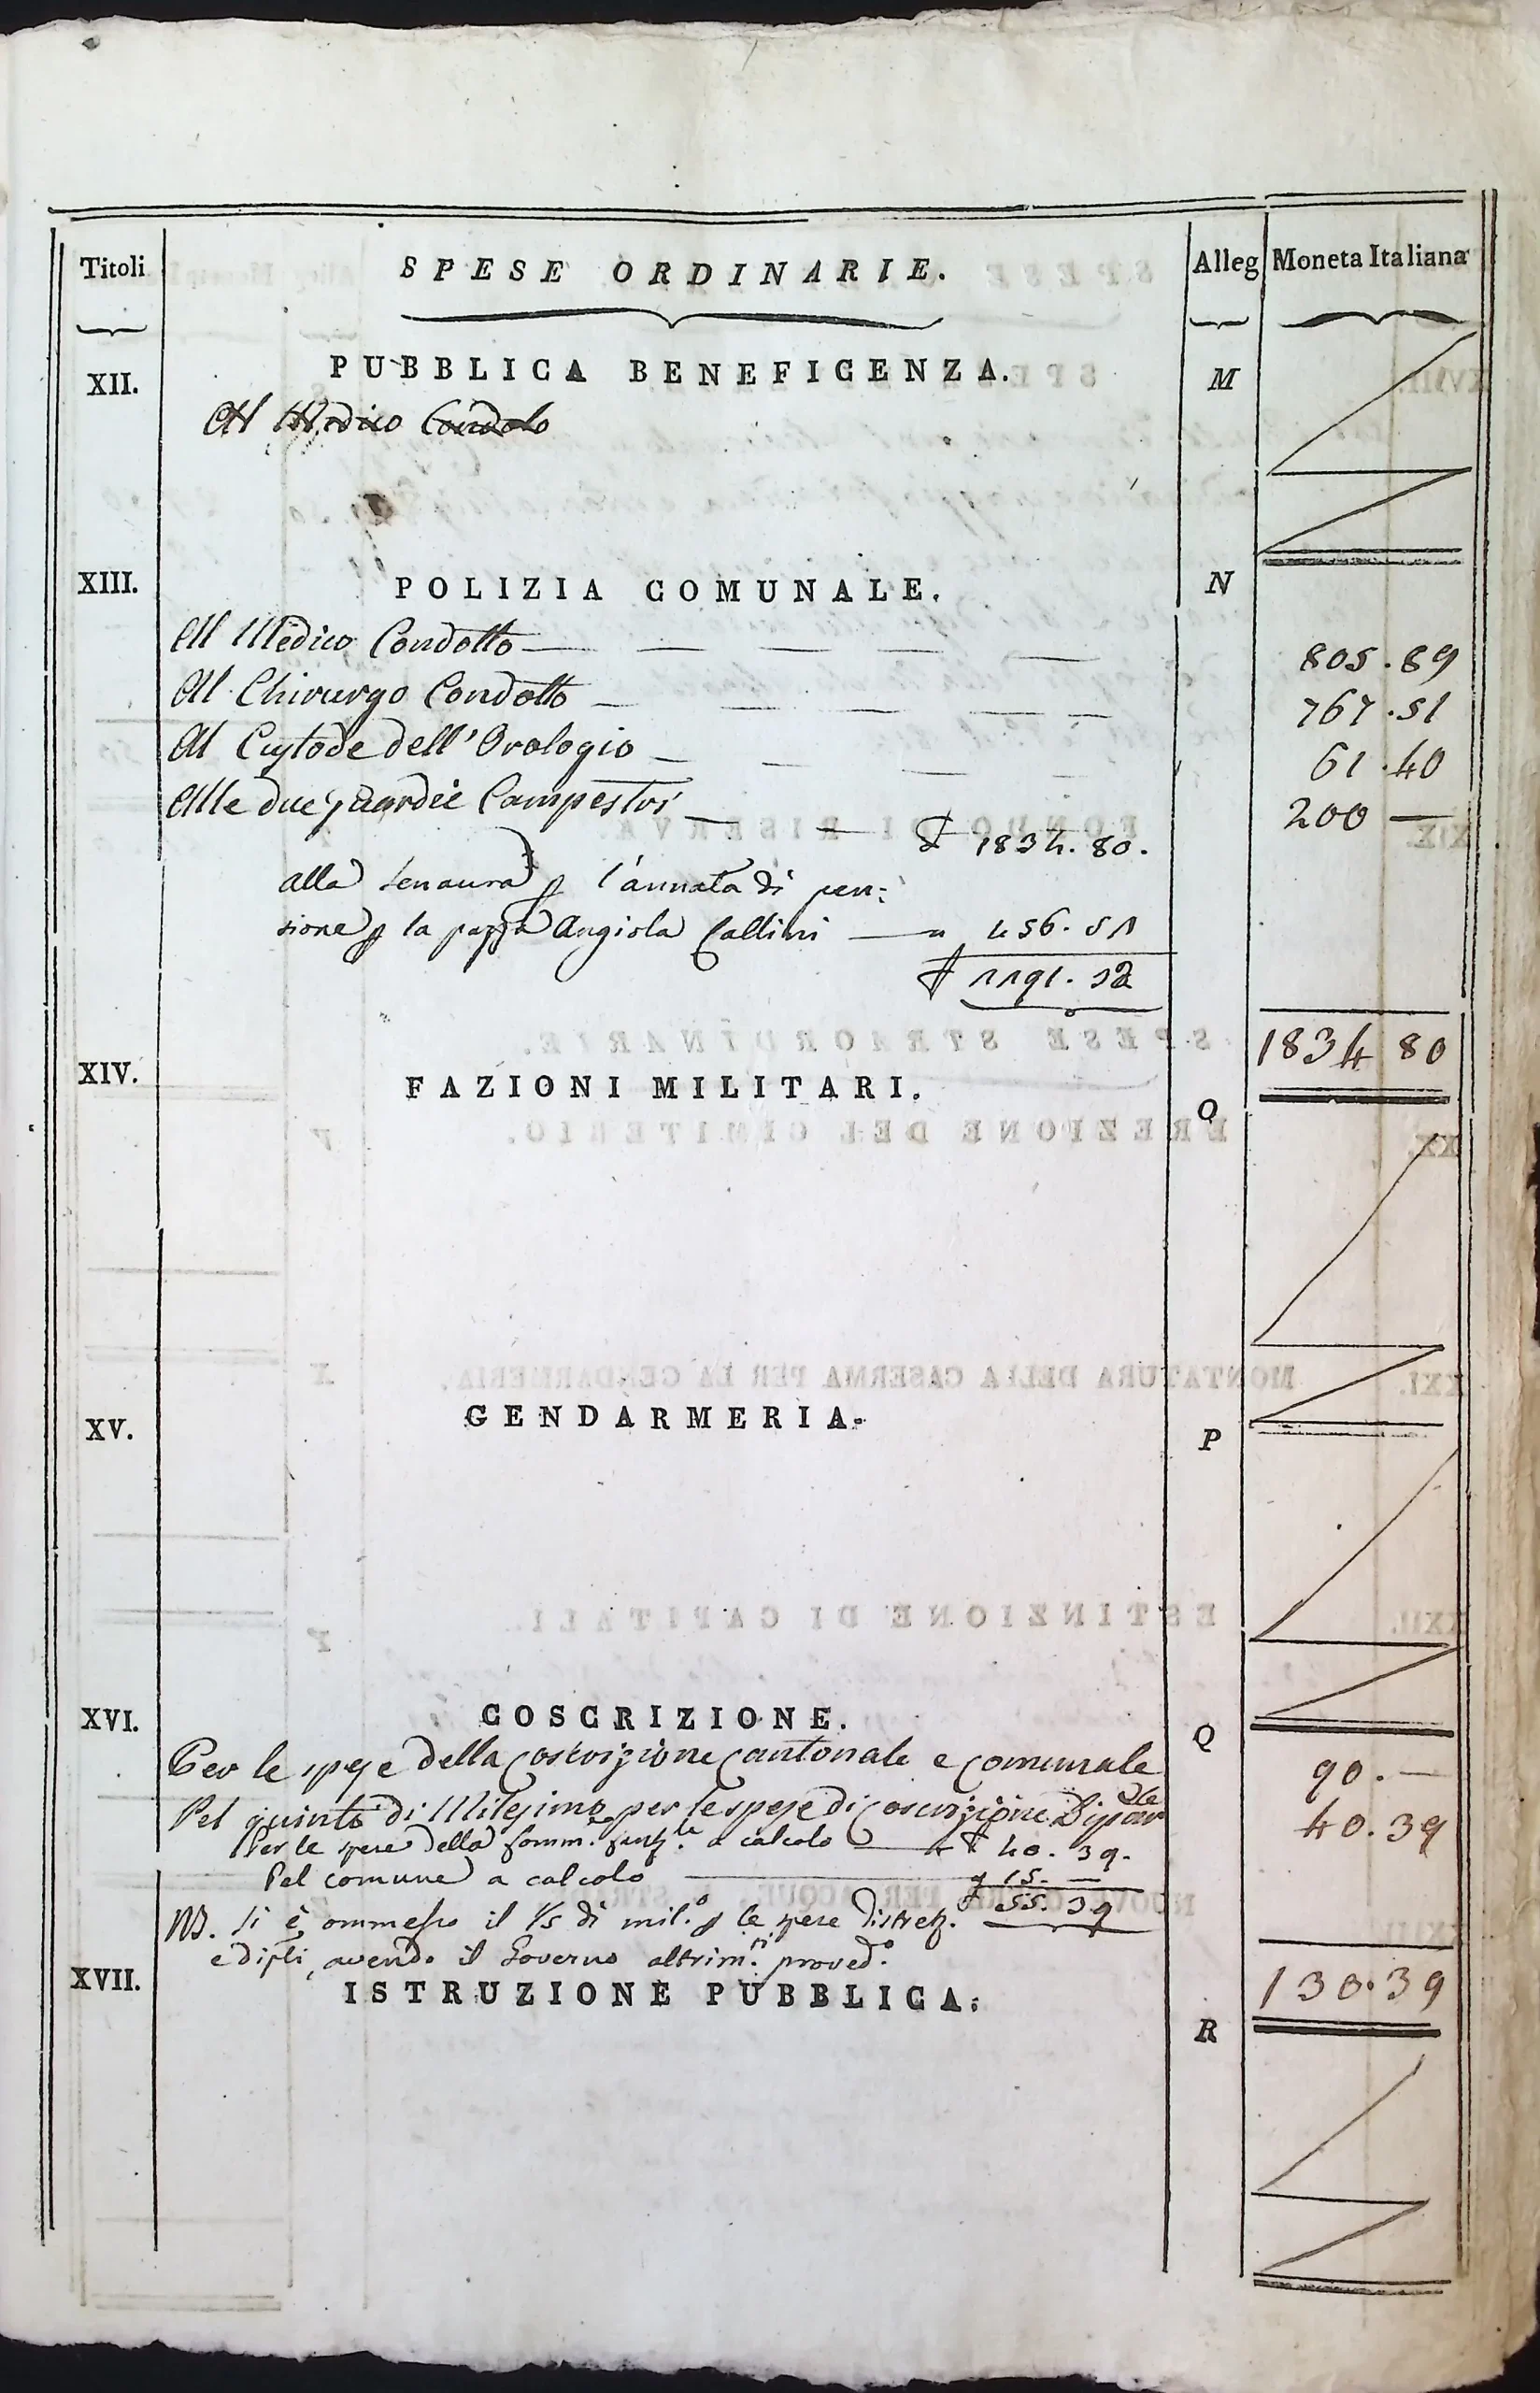 Titoli SPESE ORDINARIE. Alleg Moneta Italiana
XII. PUBBLICA BENEFICENZA. M
Al Medico Condolo
XIII. POLIZIA COMUNALE. N
Al Medico Condotto — — — — — 805.89
Al Chirurgo Condotto — — — — — 767.51
Al Custode dell'Orologio — — — — 61.40
Alle due guardie Campestri — — 200 —
1834.80.
alla Senavra p l'annata di pen:
sione p la pazza Angiola Callini — " 456.51
1191.32
1834 80
XIV. FAZIONI MILITARI. O
XV. GENDARMERIA. P
XVI. COSCRIZIONE. Q
Per le spese della Coscrizione Cantonale e Comunale 90.—
Pel quinto di Milesimo per le spese di Coscrizione Dipar.le 40.39
Per le spese della a calcolo — 40.39.
Pel comune a calcolo — " 15.—
55.39
NB. Si è ommesso il 1/5 di mil.o p le spese distretz.
e dipli, avendo il Governo altrim.ti proved.o
130.39
XVII. ISTRUZIONE PUBBLICA. R